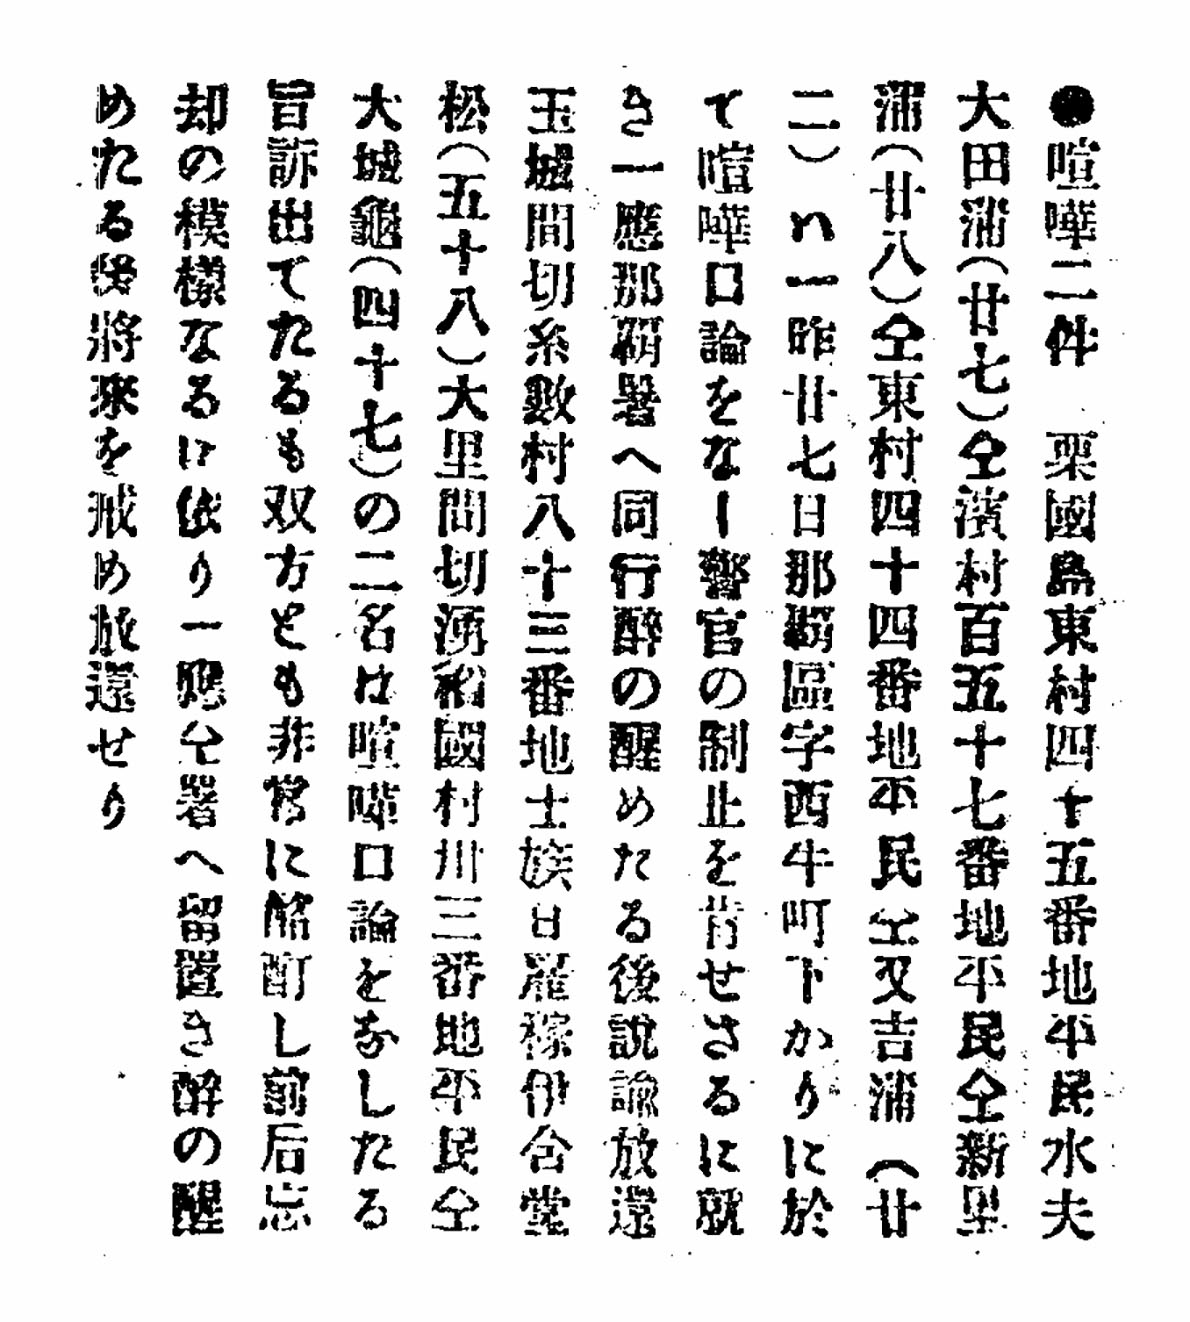 ●喧嘩二件　粟國島東村四十五番地平民水夫
大田蒲(廿七)仝濱村百五十七番地平民仝新里
蒲(廿八)仝東村四十四番地平民仝又吉浦(廿
二)ハ一昨廿七日那覇區字西牛町下かりに於
て喧嘩口論をなー警官の制止を肯せさるに就
き一應那覇署へ同行醉の醒めたる後說諭放還
玉城間切糸數村八十三番地士族日雇稼伊舎堂
松(五十八)大里間切湧稲國村卅三番地平民仝
大城龜(四十七)の二名は喧嘩口論をなしたる
旨訴出てたるも双方とも非常に酩酊し前后忘
却の模樣なるに依り一應仝署へ留置き醉の醒
めたる後將來を戒め放還せり